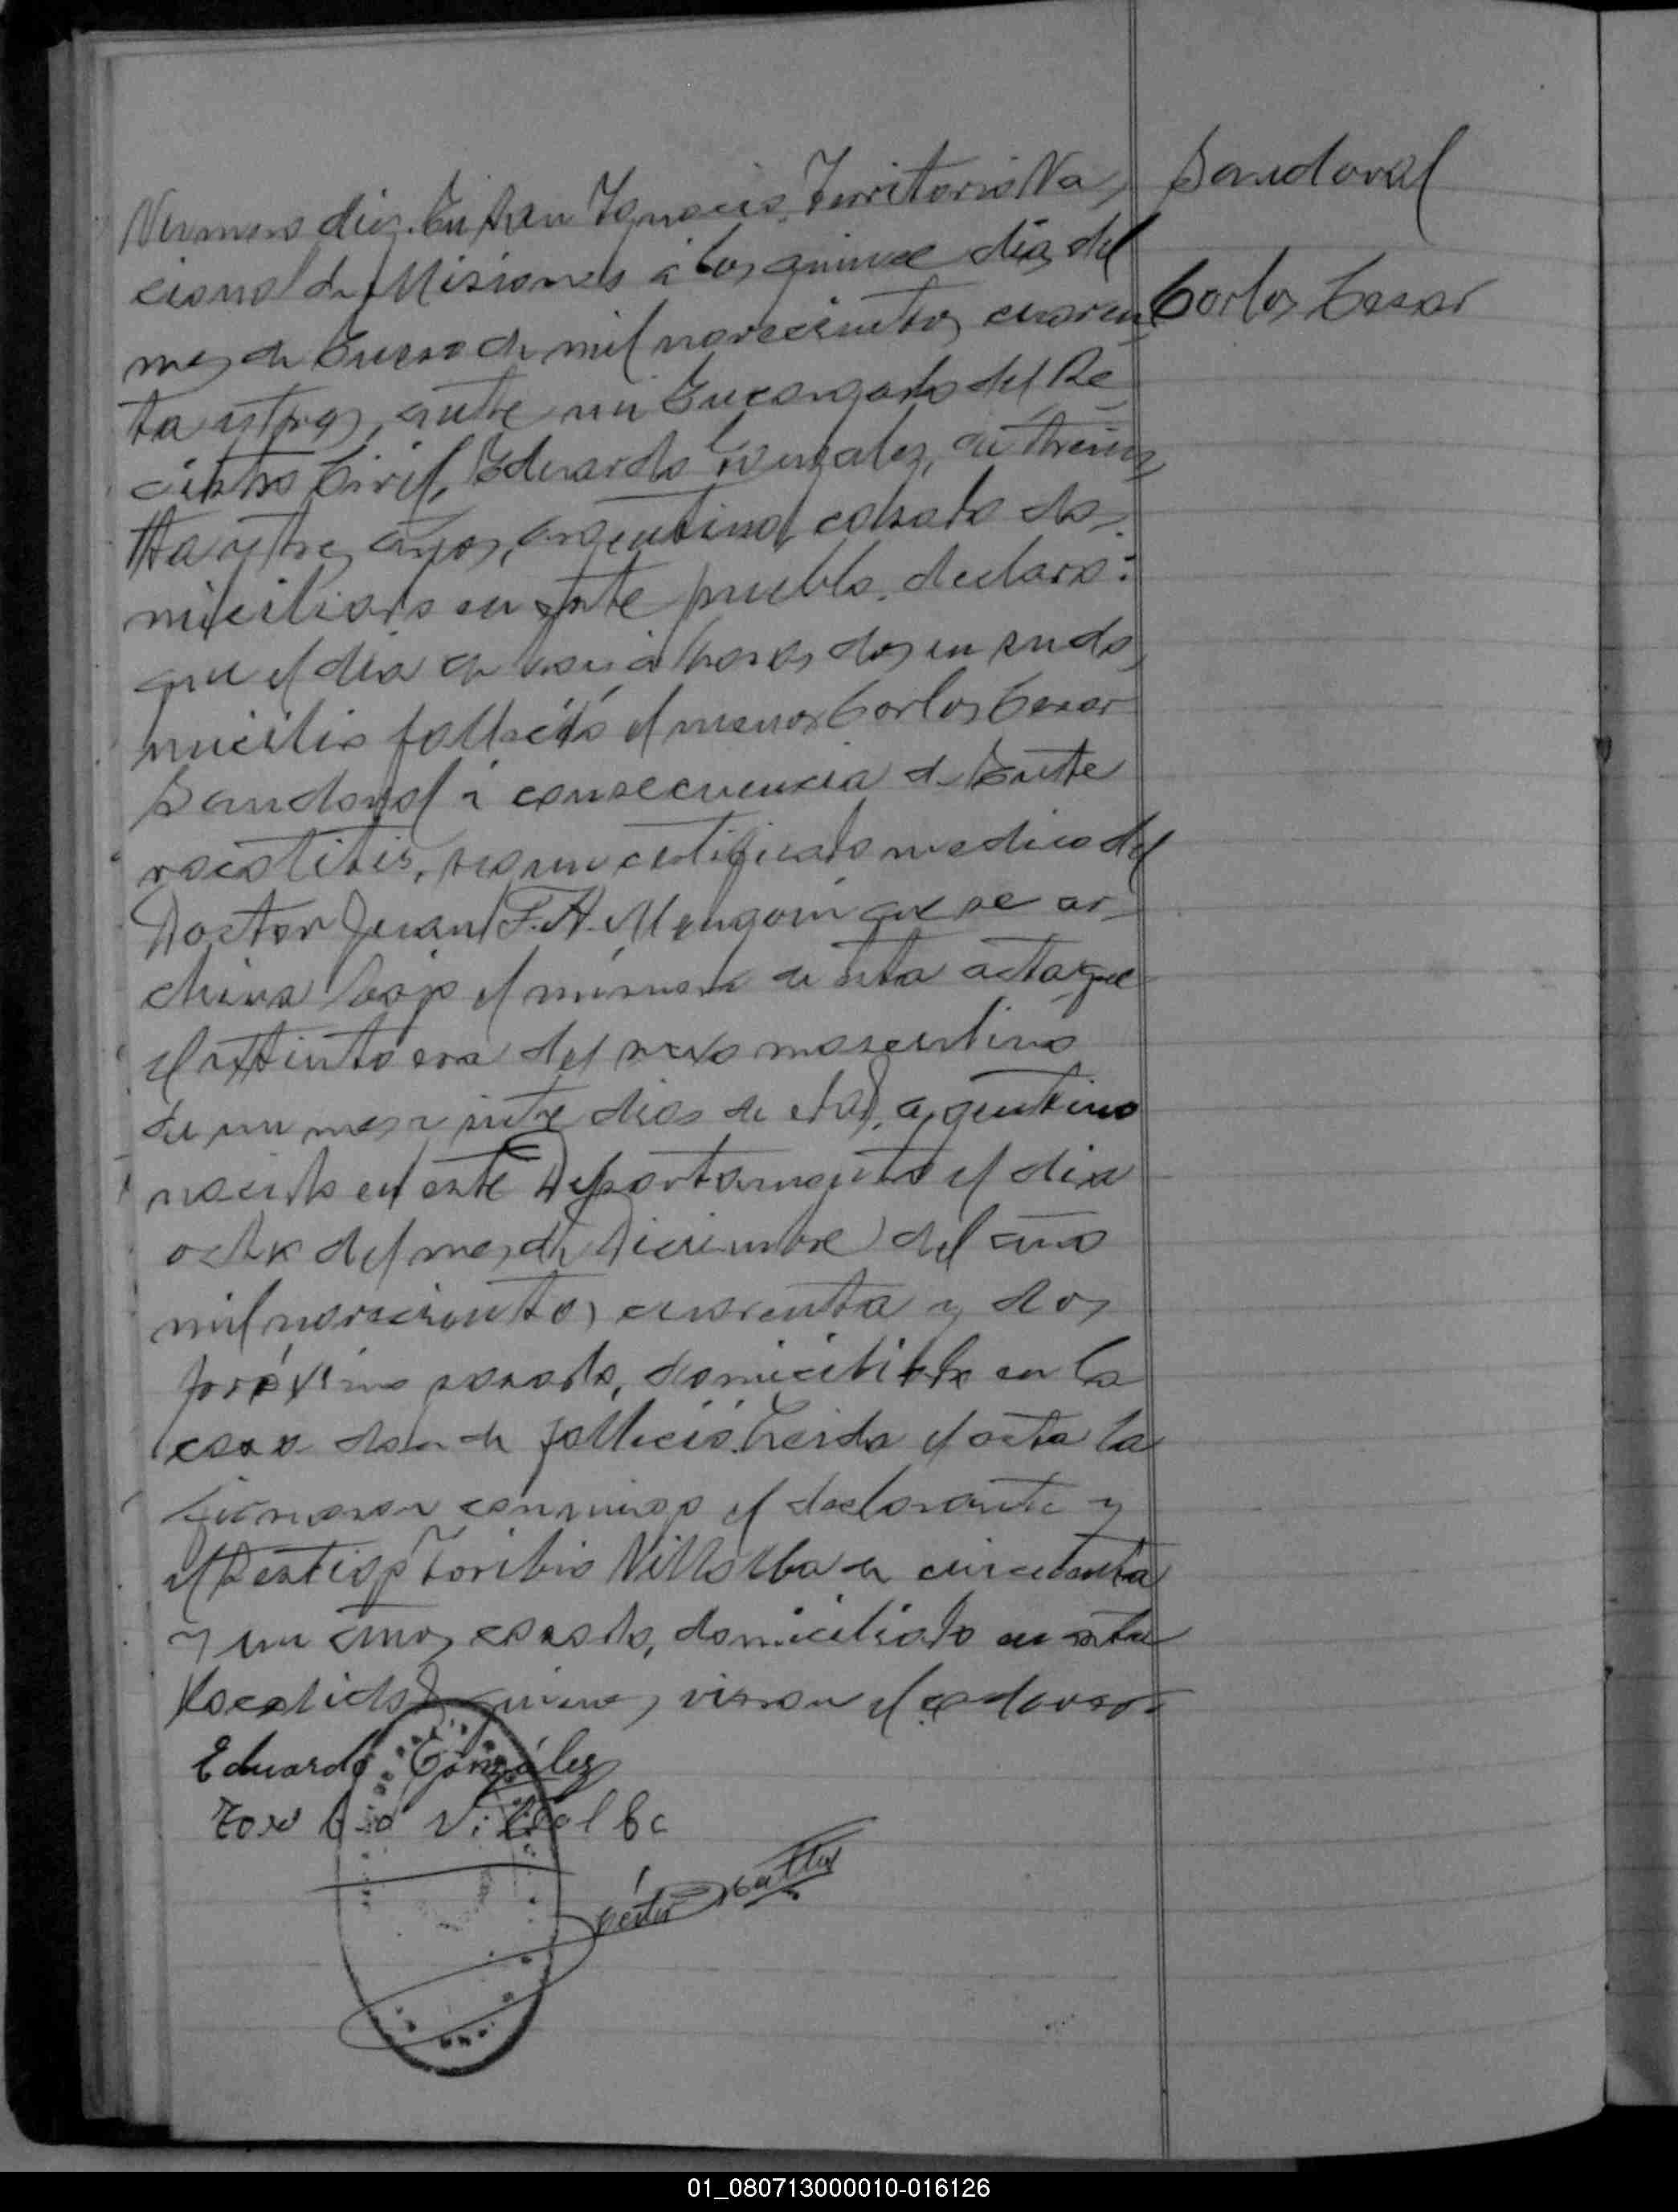 Sandoval
Carlos Cesar
Numero diez. En San Ignacio Territorio Na
cional de Misiones á los quince dias del
mes de Enero de mil novecientos cuaren
ta y tres, ante mi Encargado del Re
gistro Civil, Eduardo Gonzalez, de trein
ta y tres años, argentino, casado do
miciliado en este pueblo, declaro:
que el dia de hoy á horas dos en su do
micilio falleció el menor Carlos Cesar
Sandoval á consecuencia de Ente
rocolitis, segun certificado medico del
Doctor Juan F. A. que se ar
chiva bajo el número de esta acta que
el extinto era del sexo masculino
de un mes y siete dias de edad, argentino
nacido en este Departamento el dia
ocho del mes de Diciembre del año
mil novecientos cuarenta y dos
próximo pasado, domiciliado en la
casa donde falleció. Leida el acta la
firmaron conmigo el declarante y
el testigo Toribio Villalba de cincuenta
y un años, casado, domiciliado en esta
localidad quienes vieron el cadaver.
Eduardo González
Toribio Villalba
01_080713000010-016126